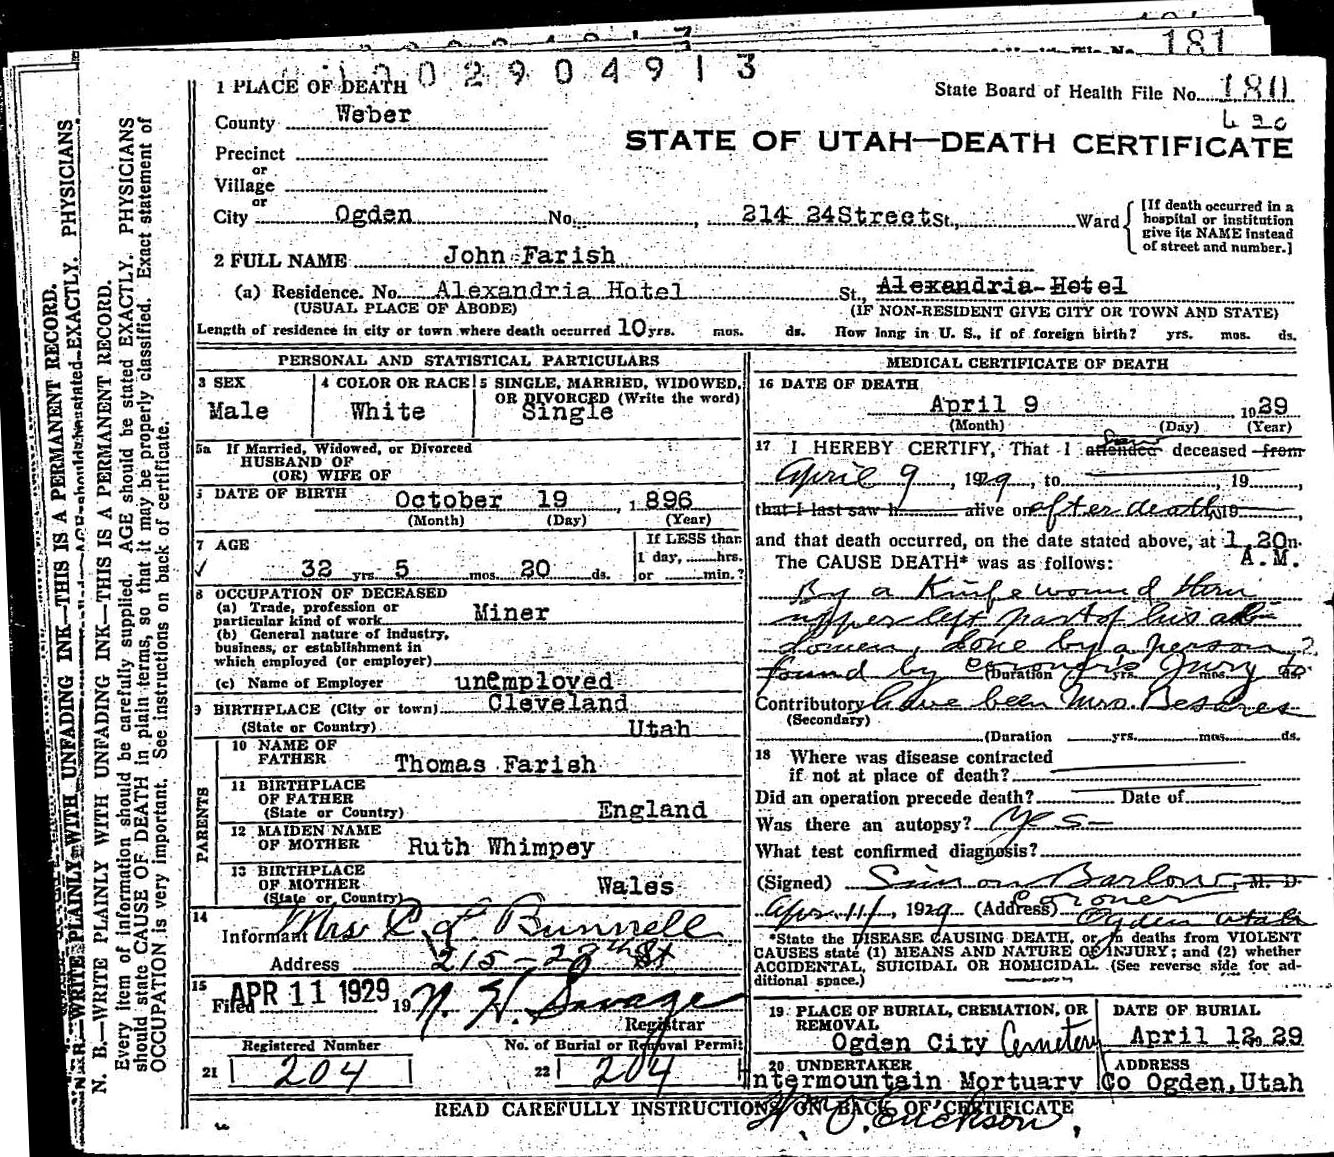 181
002904913
1 PLACE OF DEATH
State Board of Health File No. 180
County Weber
STATE OF UTAH—DEATH CERTIFICATE
Precinct
or
Village
or
City Ogden No. , 214 24Street St., Ward
[If death occurred in a hospital or institution give its NAME instead of street and number.]
2 FULL NAME John Farish
(a) Residence. No. Alexandria Hotel St., Alexandria Hotel
(USUAL PLACE OF ABODE) (IF NON-RESIDENT GIVE CITY OR TOWN AND STATE)
Length of residence in city or town where death occurred 10 yrs. mos. ds. How long in U. S., if of foreign birth? yrs. mos. ds.
PERSONAL AND STATISTICAL PARTICULARS
3 SEX Male
4 COLOR OR RACE White
5 SINGLE, MARRIED, WIDOWED, OR DIVORCED (Write the word) Single
5a If Married, Widowed, or Divorced
HUSBAND OF
(OR) WIFE OF
DATE OF BIRTH October 19, 1896
(Month) (Day) (Year)
7 AGE
32 yrs. 5 mos. 20 ds.
If LESS than
1 day, hrs.
or min.?
8 OCCUPATION OF DECEASED
(a) Trade, profession or
particular kind of work Miner
(b) General nature of industry,
business, or establishment in
which employed (or employer)
(c) Name of Employer unemployed
9 BIRTHPLACE (City or town) Cleveland
(State or Country) Utah
PARENTS
10 NAME OF FATHER Thomas Farish
11 BIRTHPLACE OF FATHER
(State or Country) England
12 MAIDEN NAME OF MOTHER Ruth Whimpey
13 BIRTHPLACE OF MOTHER
(State or Country) Wales
14 Informant Mrs C. L. Bunnell
Address 215-
15 Filed APR 11 1929 19 N. H. Savage
Registrar
Registered Number No. of Burial or Removal Permit
21 204 22 204
MEDICAL CERTIFICATE OF DEATH
16 DATE OF DEATH
April 9, 1929
(Month) (Day) (Year)
17 I HEREBY CERTIFY, That I attended saw deceased from
April 9, 1929, to , 19 ,
that I last saw h alive on after death, 19 ,
and that death occurred, on the date stated above, at 1.20 m.
A.M.
The CAUSE DEATH* was as follows:
By a Knife wound thru
upper left part of his ab-
domen, done by a person,
found by Coroner's Jury to
(Duration yrs. mos. ds.
Contributory have been Mrs. Besares
(Secondary)
(Duration yrs. mos. ds.
18 Where was disease contracted
if not at place of death?
Did an operation precede death? Date of
Was there an autopsy? Yes-
What test confirmed diagnosis?
(Signed) Simon Barlow, M. D.
Coroner
Apr. 11/, 1929 (Address) Ogden Utah
*State the DISEASE CAUSING DEATH, or in deaths from VIOLENT
CAUSES state (1) MEANS AND NATURE OF INJURY; and (2) whether
ACCIDENTAL, SUICIDAL OR HOMICIDAL. (See reverse side for ad-
ditional space.)
19 PLACE OF BURIAL, CREMATION, OR REMOVAL
Ogden City Cemetery
DATE OF BURIAL
April 12, 29
20 UNDERTAKER
Intermountain Mortuary Co
ADDRESS
Ogden, Utah
READ CAREFULLY INSTRUCTIONS ON BACK OF CERTIFICATE
N. B.—WRITE PLAINLY WITH UNFADING INK—THIS IS A PERMANENT RECORD.
Every item of information should be carefully supplied. AGE should be stated EXACTLY. PHYSICIANS
should state CAUSE OF DEATH in plain terms, so that it may be properly classified. Exact statement of
OCCUPATION is very important. See instructions on back of certificate.